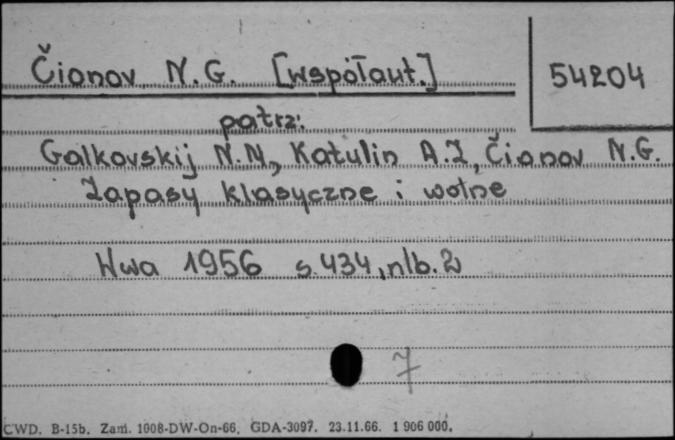 Čionov N.G. [współaut.]
54204
patrz:
Galkovskij N.N., Katulin A.Z, Čionov N.G.
Zapasy klasyczne i wolne
Wwa 1956 s. 434, nlb. 2
7
CWD. B-15b. Zam. 1008-DW-On-66. GDA-3097. 23.11.66. 1 906 000.